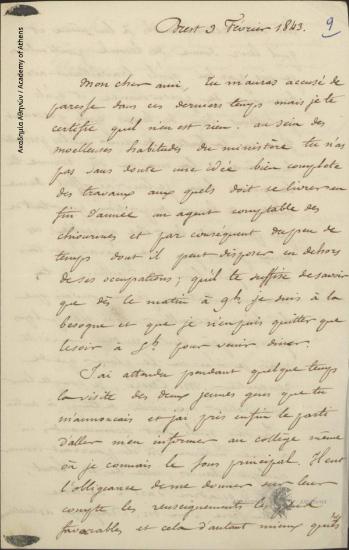 Brest 3 Février 1843.
9
Ακαδημία Αθηνών / Academy of Athens
Mon cher ami, tu m'auras accusé de
paresse dans ces derniers temps mais je te
certifie qu'il n'en est rien. au sein des
moelleuses habitudes du ministère tu n'as
pas sans doute une idée bien complete
des travaux aux quels doit se livrer en
fin d'année un agent comptable des
chiourmes et par conséquent du peu de
temps dont il peut disposer en dehors
de ses occupations; qu'il te suffise de savoir
que dès le matin à 9h. je suis à la
besogne et que je n'en puis quitter que
le soir à 5h. pour venir diner.
J'ai attendu pendant quelque temps
la visite des deux jeunes gens que tu
m'annoncais et j'ai pris enfin le parti
d'aller m'en informer au collège même
où je connais le sous principal. Il eut
l'obligeance de me donner sur leur
compte les renseignements les plus
favorables et cela d'autant mieux qu'ils